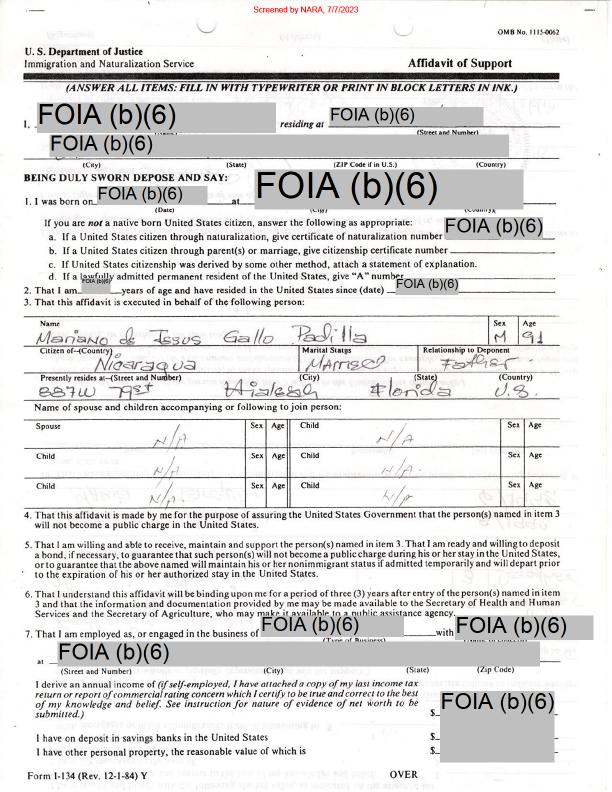 Screened by NARA, 7/7/2023
OMB No. 1115-0062
U. S. Department of Justice
Immigration and Naturalization Service Affidavit of Support
(ANSWER ALL ITEMS: FILL IN WITH TYPEWRITER OR PRINT IN BLOCK LETTERS IN INK.)
I, FOIA (b)(6) residing at FOIA (b)(6)
(Street and Number)
FOIA (b)(6)
(City) (State) (ZIP Code if in U.S.) (Country)
BEING DULY SWORN DEPOSE AND SAY:
1. I was born on FOIA (b)(6) at FOIA (b)(6)
(Date) (City) (Country)
If you are not a native born United States citizen, answer the following as appropriate:
a. If a United States citizen through naturalization, give certificate of naturalization number FOIA (b)(6)
b. If a United States citizen through parent(s) or marriage, give citizenship certificate number
c. If United States citizenship was derived by some other method, attach a statement of explanation.
d. If a lawfully admitted permanent resident of the United States, give "A" number
2. That I am FOIA (b)(6) years of age and have resided in the United States since (date) FOIA (b)(6)
3. That this affidavit is executed in behalf of the following person:
Name Sex Age
Mariano de Jesus Gallo Padilla M 91
Citizen of--(Country) Marital Status Relationship to Deponent
Nicaragua Married Father
Presently resides at--(Street and Number) (City) (State) (Country)
887W 79st Hialeah Florida U.S.
Name of spouse and children accompanying or following to join person:
Spouse Sex Age Child Sex Age
N/A N/A
Child Sex Age Child Sex Age
N/A N/A.
Child Sex Age Child Sex Age
N/A. N/A.
4. That this affidavit is made by me for the purpose of assuring the United States Government that the person(s) named in item 3
will not become a public charge in the United States.
5. That I am willing and able to receive, maintain and support the person(s) named in item 3. That I am ready and willing to deposit
a bond, if necessary, to guarantee that such person(s) will not become a public charge during his or her stay in the United States,
or to guarantee that the above named will maintain his or her nonimmigrant status if admitted temporarily and will depart prior
to the expiration of his or her authorized stay in the United States.
6. That I understand this affidavit will be binding upon me for a period of three (3) years after entry of the person(s) named in item
3 and that the information and documentation provided by me may be made available to the Secretary of Health and Human
Services and the Secretary of Agriculture, who may make it available to a public assistance agency.
7. That I am employed as, or engaged in the business of FOIA (b)(6) with FOIA (b)(6)
(Type of Business)
at FOIA (b)(6)
(Street and Number) (City) (State) (Zip Code)
I derive an annual income of (if self-employed, I have attached a copy of my last income tax
return or report of commercial rating concern which I certify to be true and correct to the best
of my knowledge and belief. See instruction for nature of evidence of net worth to be
submitted.) $ FOIA (b)(6)
I have on deposit in savings banks in the United States $
I have other personal property, the reasonable value of which is $
Form I-134 (Rev. 12-1-84) Y OVER